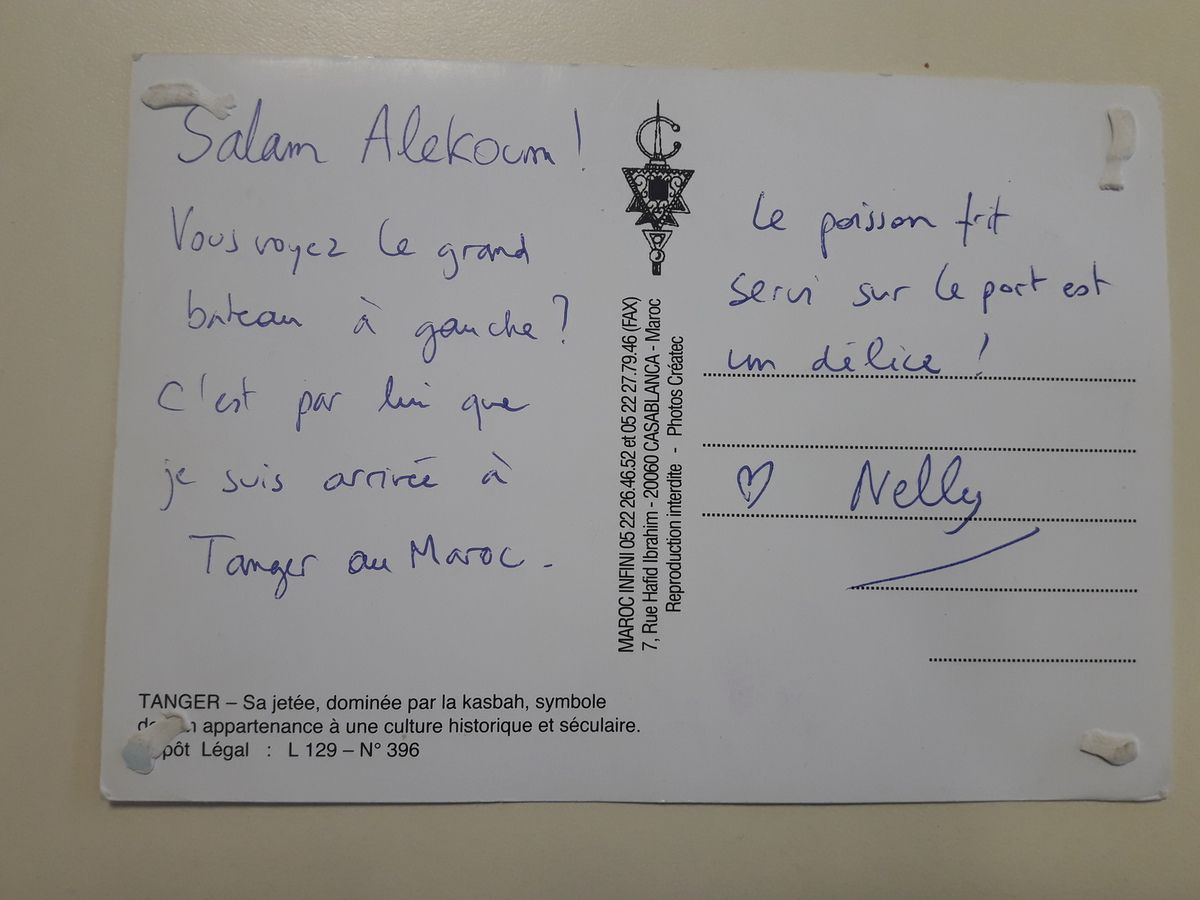 Salam Alekoum !
Vous voyez le grand
bateau à gauche ?
C'est par lui que
je suis arrivée à
Tanger au Maroc.
TANGER – Sa jetée, dominée par la kasbah, symbole
appartenance à une culture historique et séculaire.
Légal : L 129 – N° 396
MAROC INFINI 05 22 26.46.52 et 05 22 27.79.46 (FAX)
7, Rue Hafid Ibrahim - 20060 CASABLANCA - Maroc
Reproduction interdite - Photos Créatec
Le poisson frit
servi sur le port est
un délice !
♡ Nelly